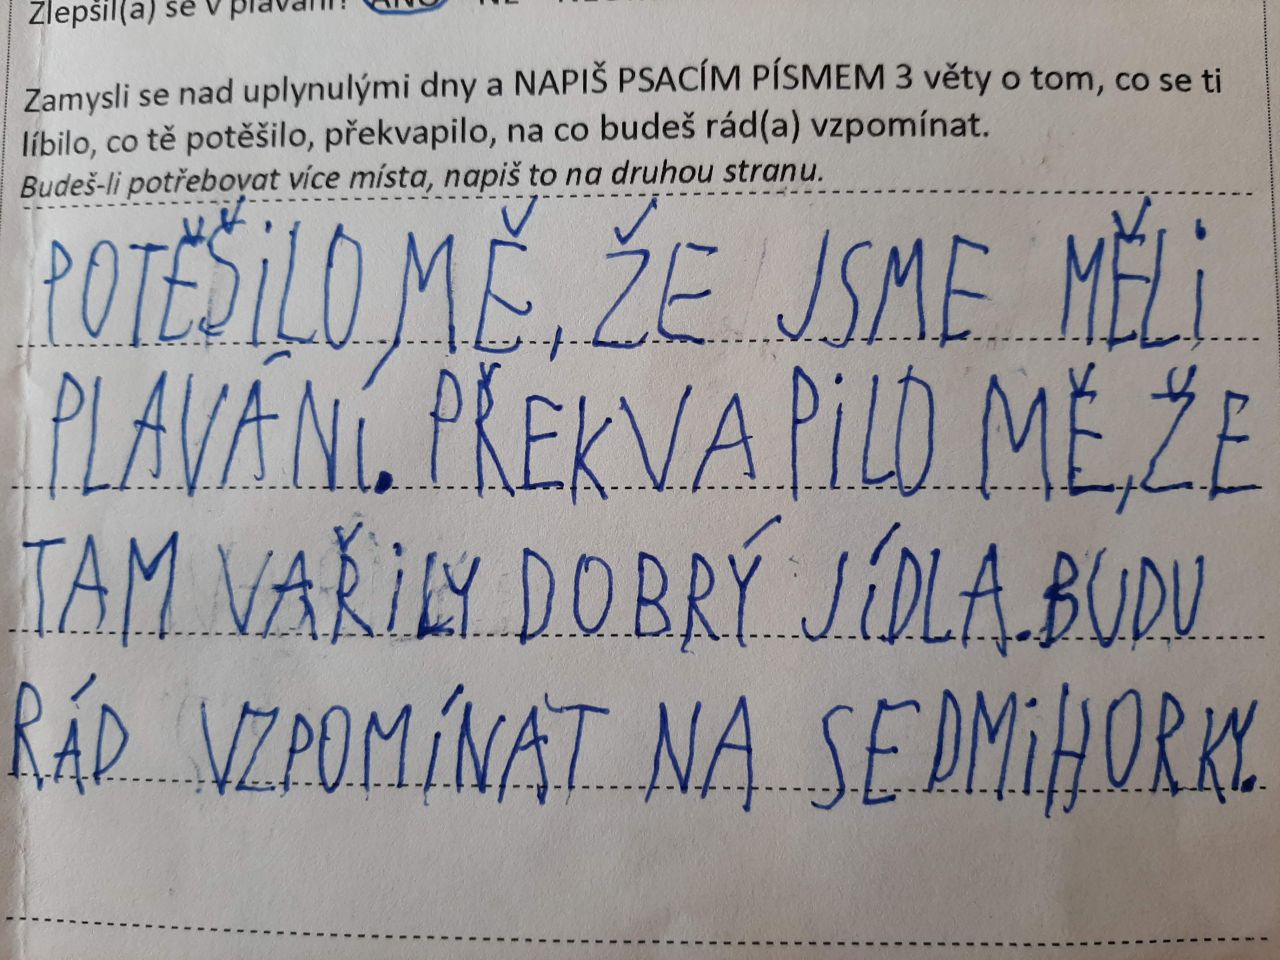 Zlepšil(a) se v plavání? ANO NE
Zamysli se nad uplynulými dny a NAPIŠ PSACÍM PÍSMEM 3 věty o tom, co se ti
líbilo, co tě potěšilo, překvapilo, na co budeš rád(a) vzpomínat.
Budeš-li potřebovat více místa, napiš to na druhou stranu.
POTĚŠiLO MĚ, ŽE JSME MĚLi
PLAVÁNÍ. PŘEKVAPiLO MĚ, ŽE
TAM VAŘiLY DOBRÝ JÍDLA. BUDU
RÁD VZPOMÍNAT NA SEDMiHORKY.